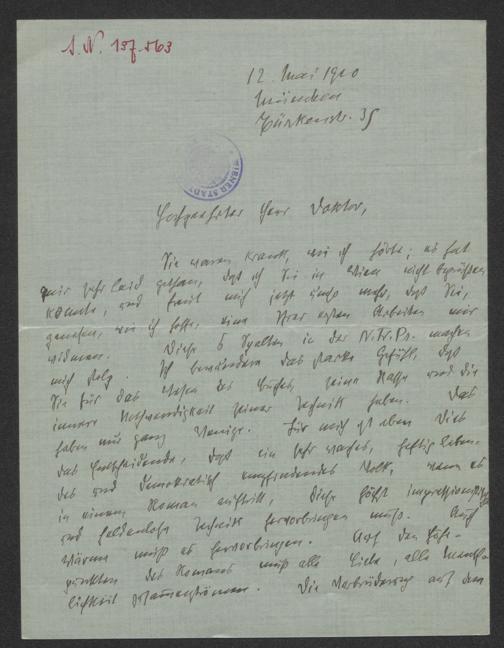 S. N. 157.563
12. Mai 1910
München
Türkenstr. 35
WIENER STADT
Hochgeehrter Herr Doktor,
Sie waren krank, wie ich hörte; es hat
mir sehr leid gethan, daß ich Sie in Wien nicht begrüßen
konnte, und freut mich jetzt umso mehr, daß Sie,
genesen, wie ich hoffe, eine Ihrer ersten Arbeiten mir
widmen. Diese 5 Spalten in der N. Fr. Pr. machen
mich stolz. Ich bewundere das starke Gefühl, das
Sie für das Wesen des Buches, seine Rasse und die
innere Nothwendigkeit seiner Technik haben. Das
haben nur ganz Wenige. Für mich ist eben Dies
das Entscheidende, daß ein sehr waches, heftig leben-
des und demokratisch empfindendes Volk, wenn es
in einem Roman auftritt, diese höchst impressionistische
und heldenlose Technik hervorbringen muß. Auch
Wärme muß es hervorbringen. Auf den Höhe-
punkten des Romans muß alle Liebe, alle Mensch-
lichkeit zusammenströmen. Die Verbrüderung auf dem